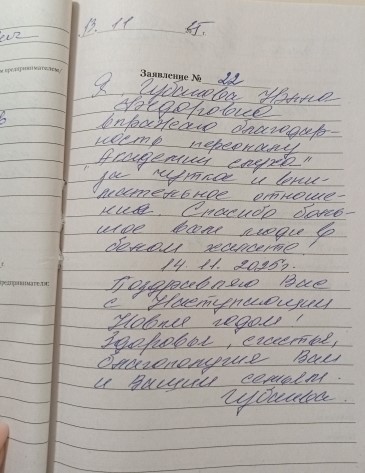 13. 11 25г.
Заявление № 22
Я, Губанова Нина
Фёдоровна
выражаю благодар-
ность персоналу
"Академии слуха"
за чуткое и вни-
мательное отноше-
ние. Спасибо боль-
шое вам люди в
белом халате!
14. 11. 2025г.
Поздравляю Вас
с Наступающим
Новым годом!
Здоровья, счастья,
благополучия Вам
и Вашим семьям.
Губанова.